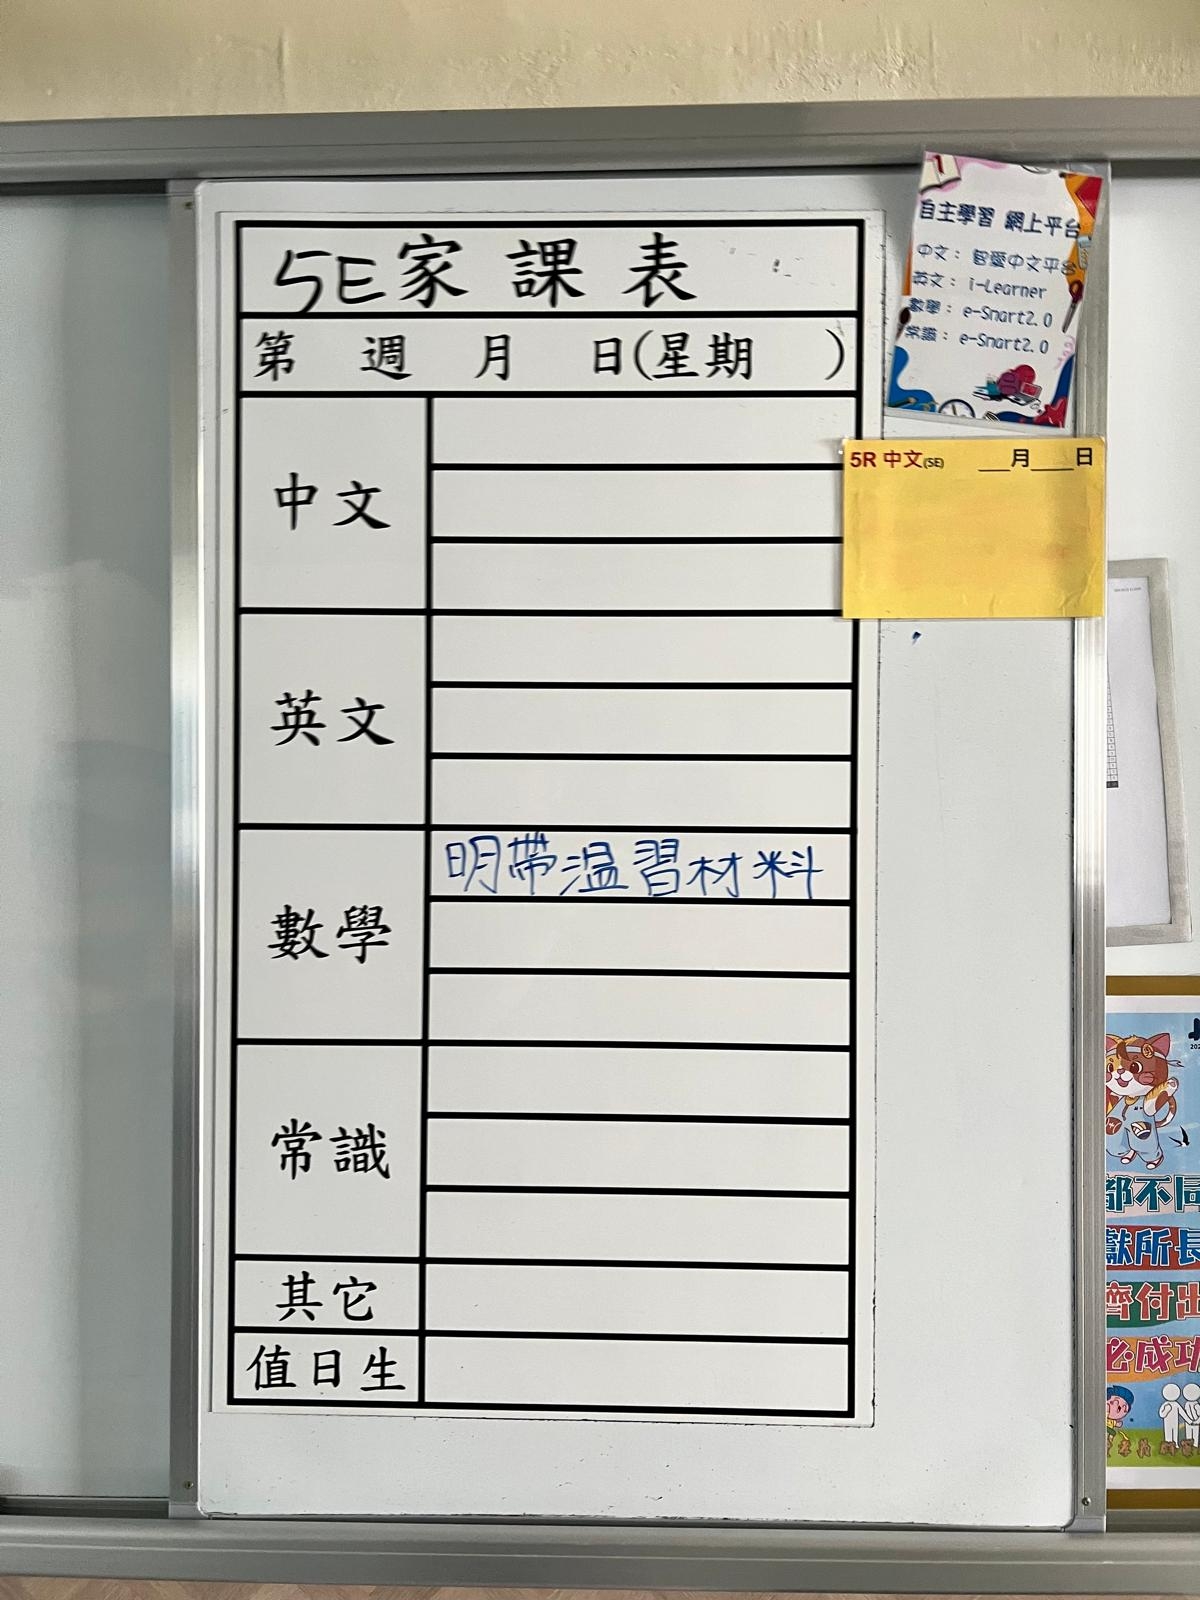 5E家課表
第 週 月 日(星期 )
中文
英文
數學
明帶溫習材料
常識
其它
值日生
1
自主學習 網上平台
中文： 智愛中文平台
英文： i-Learner
數學： e-Smart2.0
常識： e-Smart2.0
5R 中文(5E) ___月____日
都不同
獻所長
齊付出
必成功